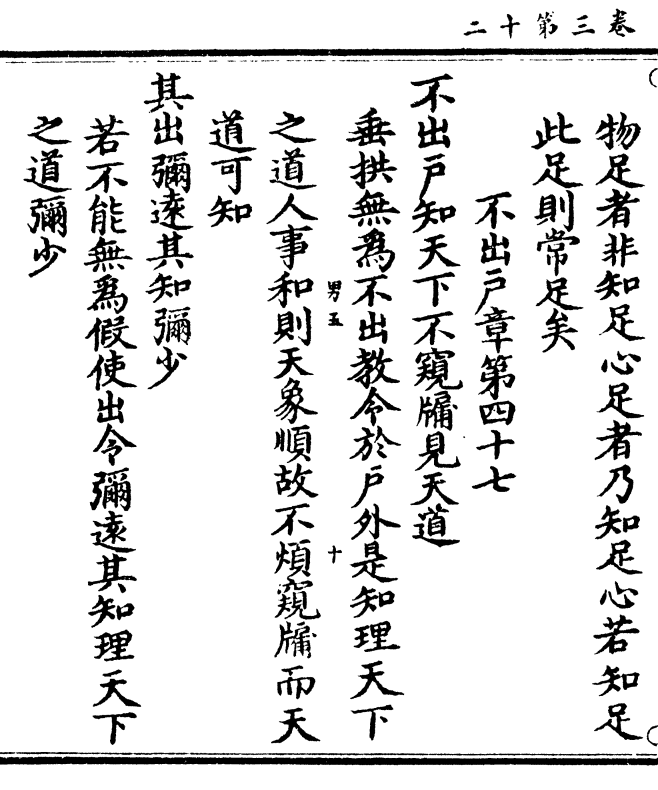 卷三第十二
物足者非知足心足者乃知足心若知足
此足則常足矣
不出戶章第四十七
不出戶知天下不窺牖見天道
垂拱無爲不出教令於戶外是知理天下
男五
十
之道人事和則天象順故不煩窺牖而天
道可知
其出彌遠其知彌少
若不能無爲假使出令彌遠其知理天下
之道彌少